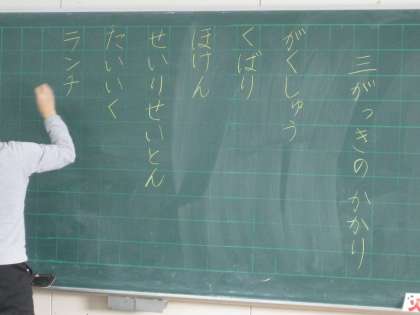 三がっきの かかり
がくしゅう
くばり
ほけん
せいりせいとん
たいいく
ランチ